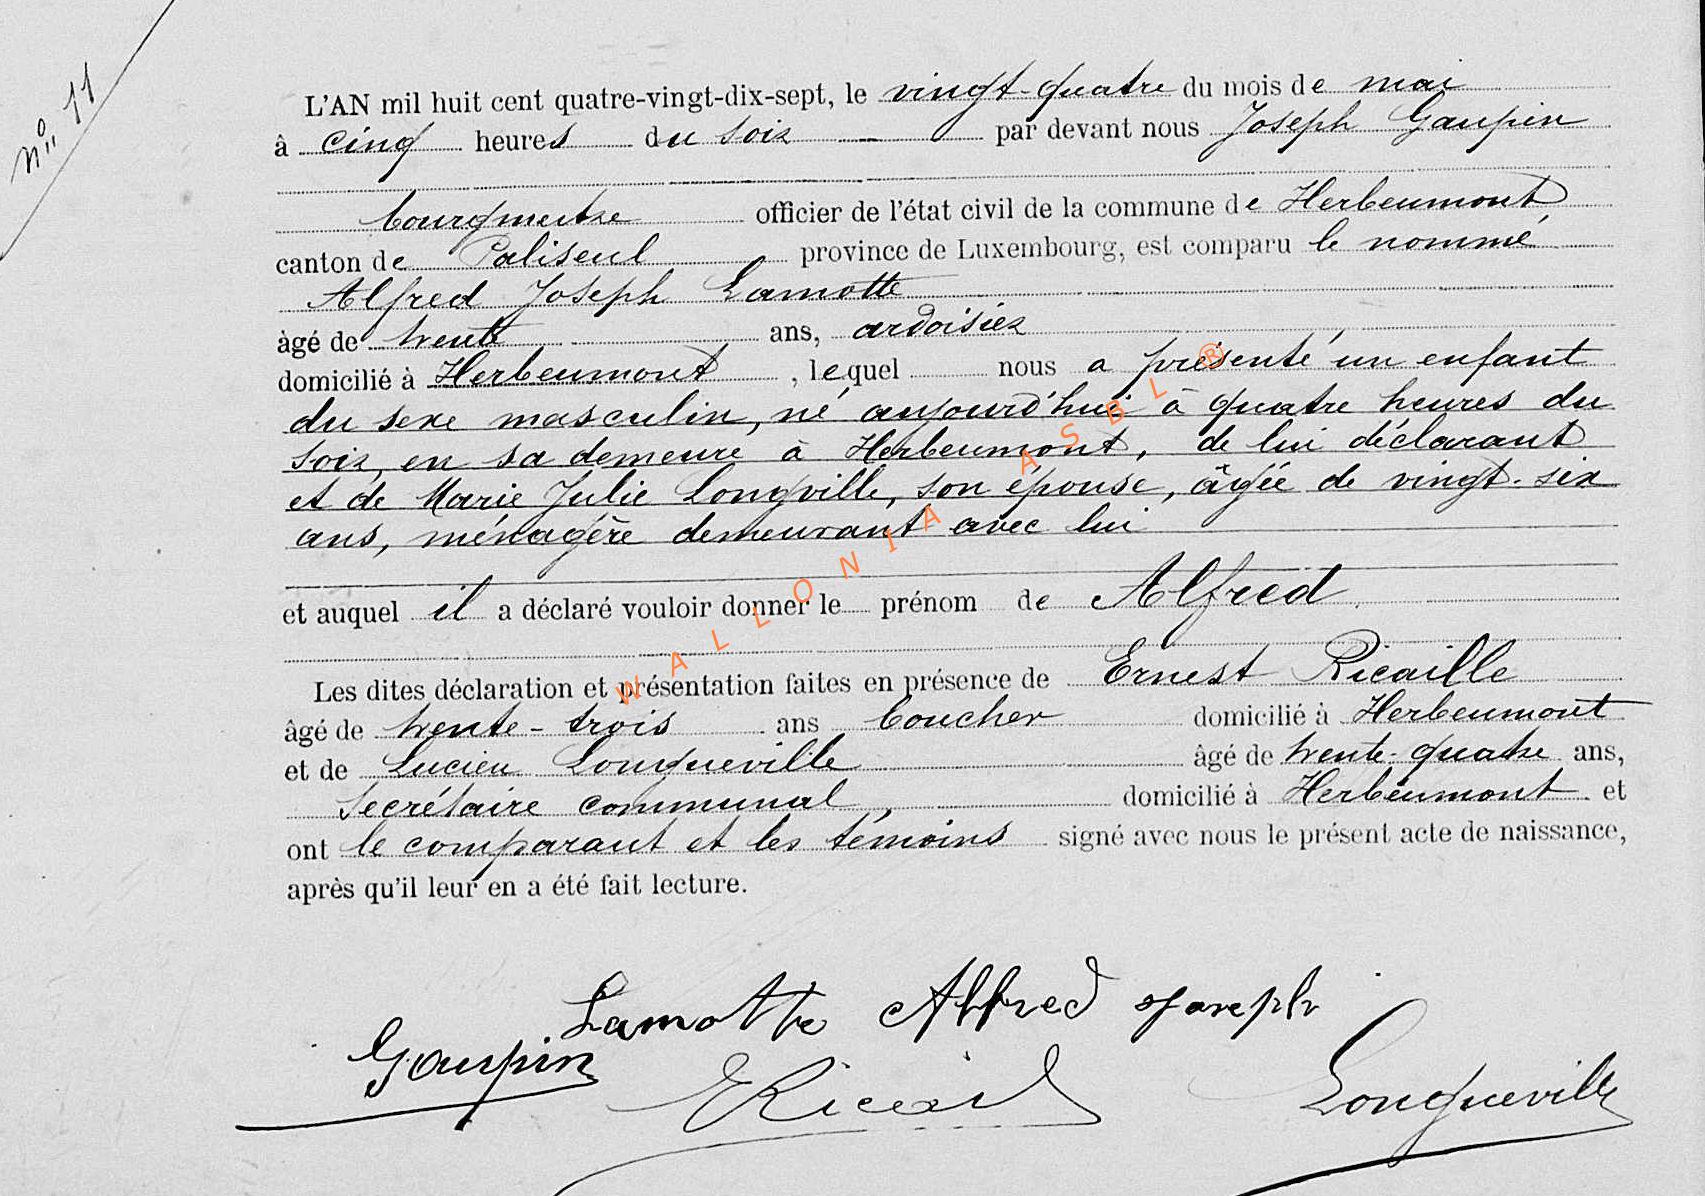 N° 11
L'AN mil huit cent quatre-vingt-dix-sept, le vingt-quatre du mois de mai
à cinq heures du soir — par devant nous Joseph Gaupin
bourgmestre officier de l'état civil de la commune de Herbeumont,
canton de Paliseul province de Luxembourg, est comparu le nommé
Alfred Joseph Lamotte
âgé de trente ans, ardoisier
domicilié à Herbeumont, lequel nous a présenté un enfant
du sexe masculin, né aujourd'hui à quatre heures du
soir, en sa demeure à Herbeumont, de lui déclarant
et de Marie Julie Longville, son épouse, âgée de vingt-six
ans, ménagère demeurant avec lui
et auquel il a déclaré vouloir donner le prénom de Alfred.
Les dites déclaration et présentation faites en présence de Ernest Ricaille
âgé de trente-trois ans boucher domicilié à Herbeumont
et de Lucien Longueville âgé de trente-quatre ans,
secrétaire communal, domicilié à Herbeumont. et
ont le comparant et les témoins signé avec nous le présent acte de naissance,
après qu'il leur en a été fait lecture.
Lamotte Alfred Joseph
Gaupin ERicail Longueville
WALLONIA ASBL ®